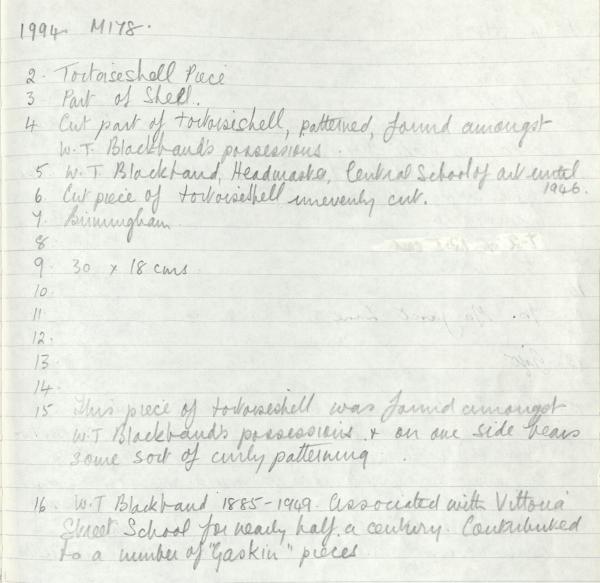 1994. M178.
2. Tortoiseshell Piece
3 Part of Shell.
4 Cut part of tortoiseshell, patterned, found amongst
W.T. Blackband's possessions.
5. W.T. Blackband, Headmaster, Central School of art until
1946.
6. Cut piece of tortoiseshell unevenly cut.
7. Birmingham
8
9. 30 x 18 cms
10.
11
12.
13
14.
15 This piece of tortoiseshell was found amongst
W.T Blackband's possessions & on one side bears
some sort of curly patterning
16. W.T Blackband 1885-1949. Associated with Vittoria
Street School for nearly half a century. Contributed
to a number of "Gaskin" pieces